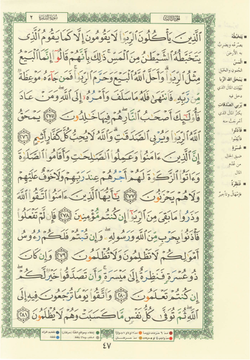 ٱلَّذِينَ يَأۡكُلُونَ ٱلرِّبَوٰاْ لَا يَقُومُونَ إِلَّا كَمَا يَقُومُ ٱلَّذِي
يَتَخَبَّطُهُ ٱلشَّيۡطَٰنُ مِنَ ٱلۡمَسِّۚ ذَٰلِكَ بِأَنَّهُمۡ قَالُوٓاْ إِنَّمَا ٱلۡبَيۡعُ
مِثۡلُ ٱلرِّبَوٰاْۗ وَأَحَلَّ ٱللَّهُ ٱلۡبَيۡعَ وَحَرَّمَ ٱلرِّبَوٰاْۚ فَمَن جَآءَهُۥ مَوۡعِظَةٞ
مِّن رَّبِّهِۦ فَٱنتَهَىٰ فَلَهُۥ مَا سَلَفَ وَأَمۡرُهُۥٓ إِلَى ٱللَّهِۖ وَمَنۡ عَادَ
فَأُوْلَٰٓئِكَ أَصۡحَٰبُ ٱلنَّارِۖ هُمۡ فِيهَا خَٰلِدُونَ ٢٧٥ يَمۡحَقُ
ٱللَّهُ ٱلرِّبَوٰاْ وَيُرۡبِي ٱلصَّدَقَٰتِۗ وَٱللَّهُ لَا يُحِبُّ كُلَّ كَفَّارٍ أَثِيمٍ ٢٧٦
إِنَّ ٱلَّذِينَ ءَامَنُواْ وَعَمِلُواْ ٱلصَّٰلِحَٰتِ وَأَقَامُواْ ٱلصَّلَوٰةَ
وَءَاتَوُاْ ٱلزَّكَوٰةَ لَهُمۡ أَجۡرُهُمۡ عِندَ رَبِّهِمۡ وَلَا خَوۡفٌ عَلَيۡهِمۡ
وَلَا هُمۡ يَحۡزَنُونَ ٢٧٧ يَٰٓأَيُّهَا ٱلَّذِينَ ءَامَنُواْ ٱتَّقُواْ ٱللَّهَ
وَذَرُواْ مَا بَقِيَ مِنَ ٱلرِّبَوٰٓاْ إِن كُنتُم مُّؤۡمِنِينَ ٢٧٨ فَإِن لَّمۡ تَفۡعَلُواْ
فَأۡذَنُواْ بِحَرۡبٖ مِّنَ ٱللَّهِ وَرَسُولِهِۦۖ وَإِن تُبۡتُمۡ فَلَكُمۡ رُءُوسُ
أَمۡوَٰلِكُمۡ لَا تَظۡلِمُونَ وَلَا تُظۡلَمُونَ ٢٧٩ وَإِن كَانَ
ذُو عُسۡرَةٖ فَنَظِرَةٌ إِلَىٰ مَيۡسَرَةٖۚ وَأَن تَصَدَّقُواْ خَيۡرٞ لَّكُمۡ
إِن كُنتُمۡ تَعۡلَمُونَ ٢٨٠ وَٱتَّقُواْ يَوۡمٗا تُرۡجَعُونَ فِيهِ إِلَى
ٱللَّهِۖ ثُمَّ تُوَفَّىٰ كُلُّ نَفۡسٖ مَّا كَسَبَتۡ وَهُمۡ لَا يُظۡلَمُونَ ٢٨١
٤٧